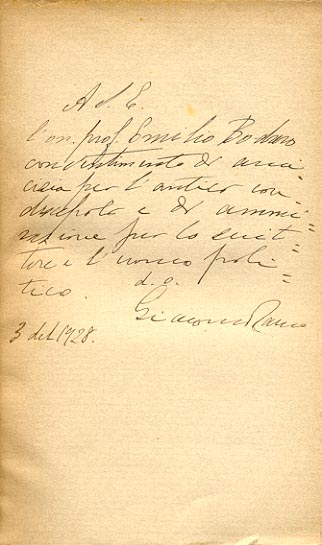 A S. E.
l'on. prof. Emilio Bodrero
con sentimento di ami=
cizia per l'antico con=
discepolo e di ammi=
razione per lo scrit=
tore e l'uomo poli=
tico. d. o.
Giacomo
3 del 1928.